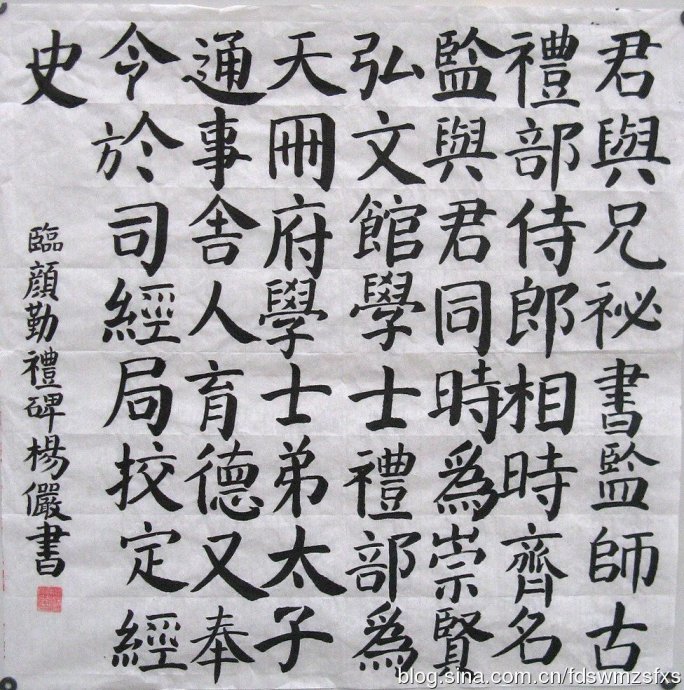 君與兄祕書監師古
禮部侍郎相時齊名
監與君同時為崇賢
弘文館學士禮部為
天冊府學士弟太子
通事舍人育德又奉
令於司經局挍定經
史
臨顏勤禮碑楊儼書
blog.sina.com.cn/fdswmzsfxs